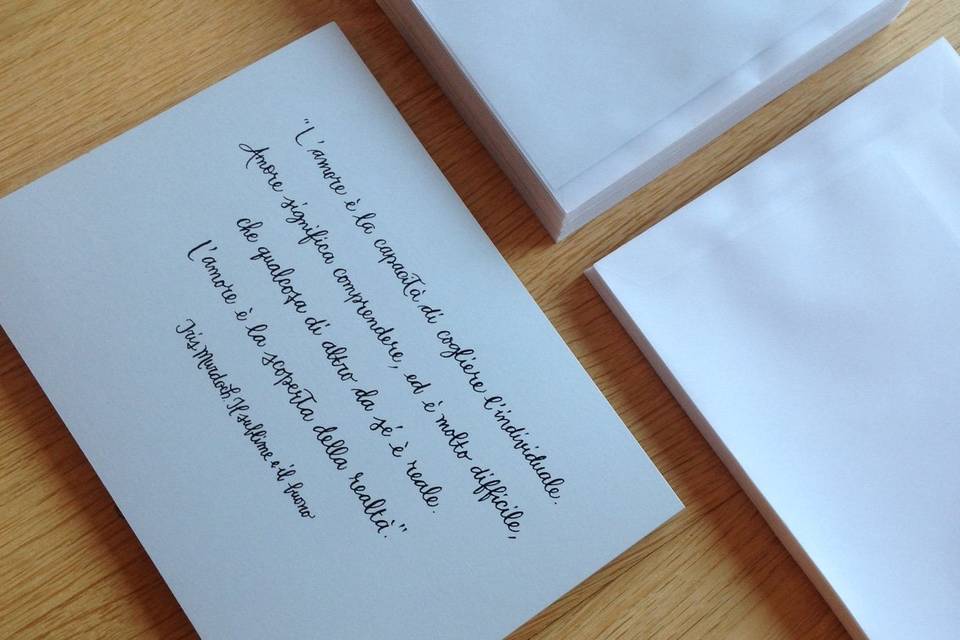 "L'amore è la capacità di cogliere l'individuale.
Amore significa comprendere, ed è molto difficile,
che qualcosa di altro da sé è reale.
L'amore è la scoperta della realtà."
Iris Murdoch, Il sublime e il buono